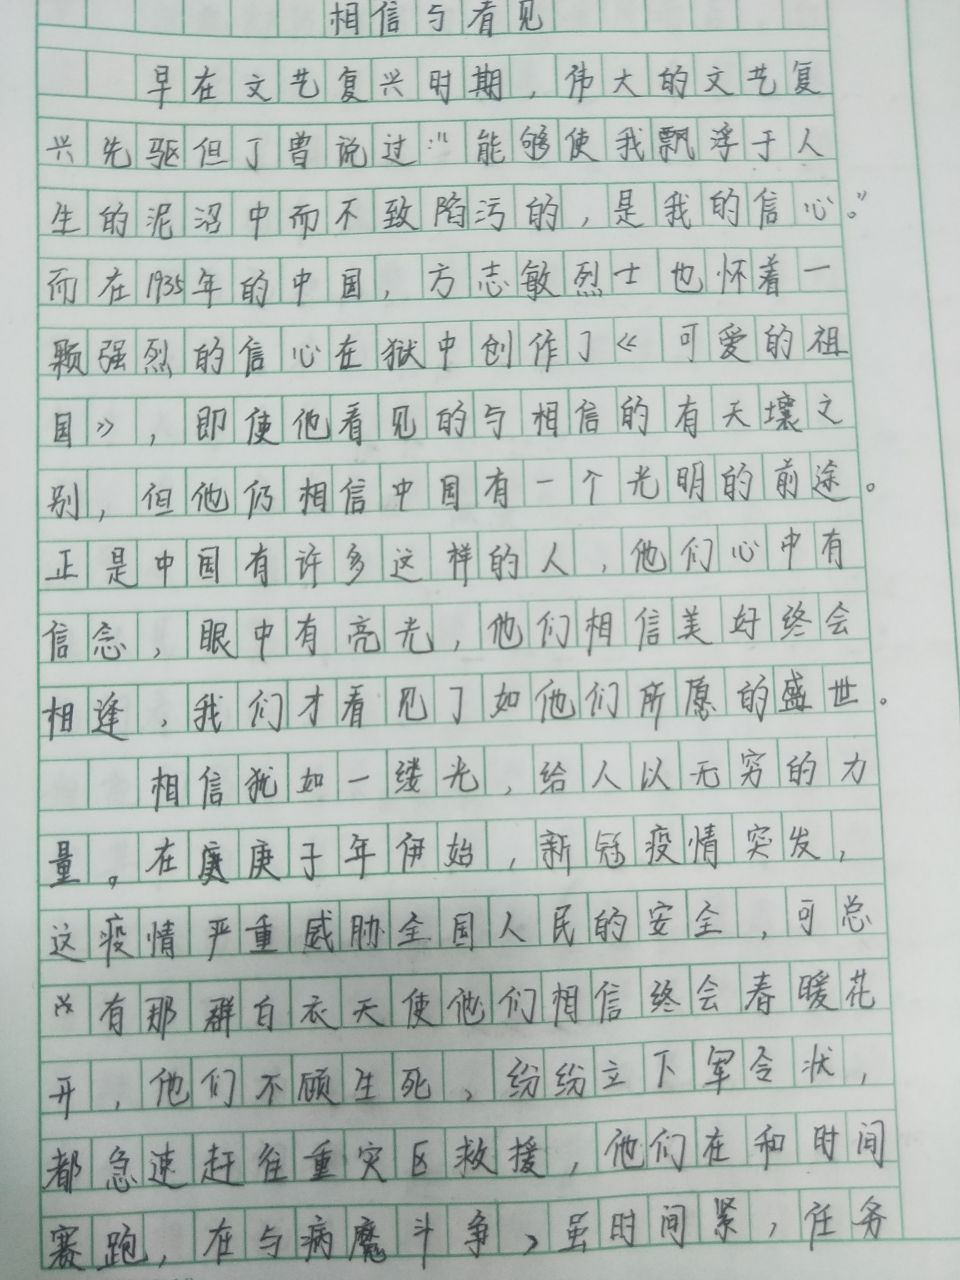 相信与看见
早在文艺复兴时期，伟大的文艺复
兴先驱但丁曾说过："能够使我飘浮于人
生的泥沼中而不致陷污的，是我的信心。"
而在1935年的中国，方志敏烈士也怀着一
颗强烈的信心在狱中创作了《可爱的祖
国》，即使他看见的与相信的有天壤之
别，但他仍相信中国有一个光明的前途。
正是中国有许多这样的人，他们心中有
信念，眼中有亮光，他们相信美好终会
相逢，我们才看见了如他们所愿的盛世。
相信犹如一缕光，给人以无穷的力
量。在庚子年伊始，新冠疫情突发，
这疫情严重威胁全国人民的安全，可总
有那群白衣天使他们相信终会春暖花
开，他们不顾生死，纷纷立下军令状，
都急速赶往重灾区救援，他们在和时间
赛跑，在与病魔斗争，虽时间紧，任务